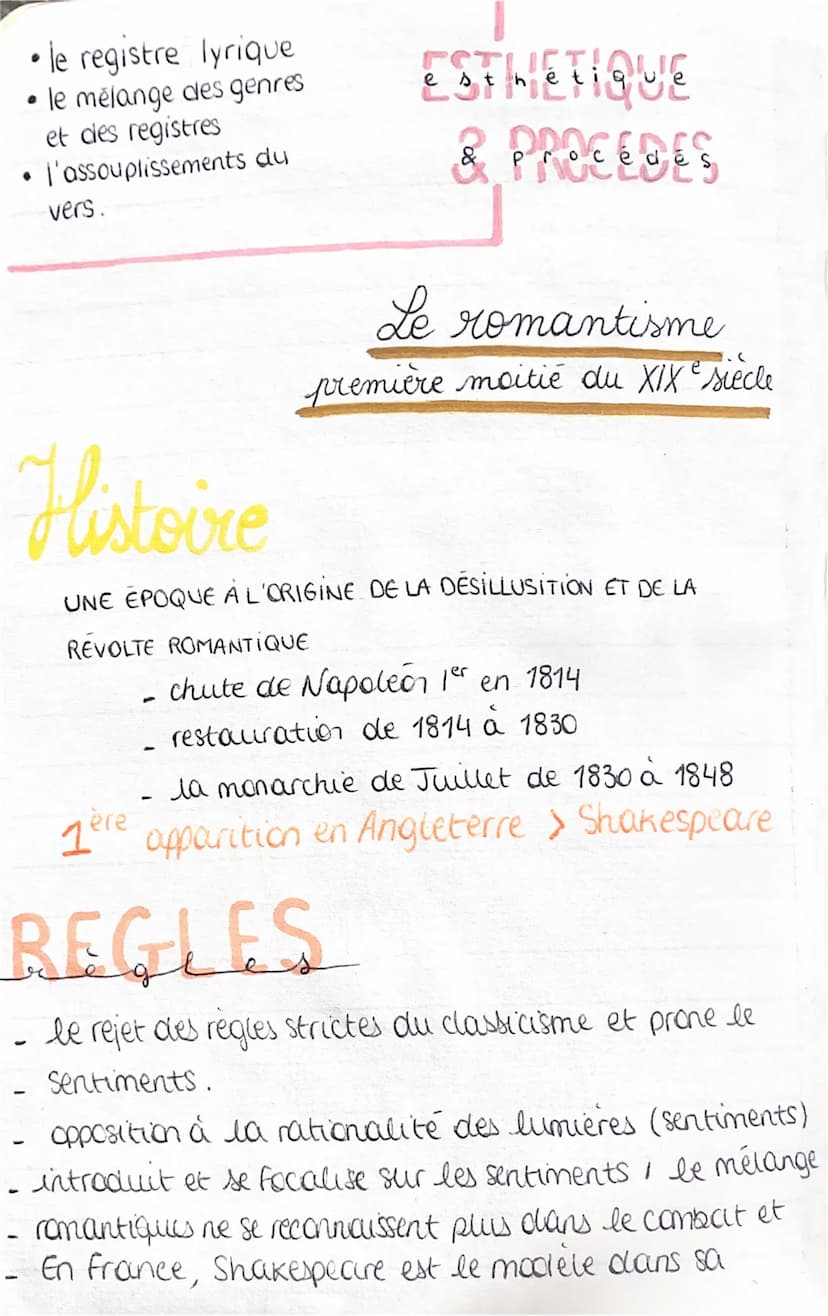 • le registre lyrique
• le mélange des genres
et des registres
• l'assouplissements du
vers.
ESTHETIQUE
esthétique
& PROCEDES
& procédés
Le romantisme
première moitié du XIXe siècle
Histoire
UNE ÉPOQUE À L'ORIGINE DE LA DÉSILLUSITION ET DE LA
RÉVOLTE ROMANTIQUE
- chute de Napoléon 1er en 1814
- restauration de 1814 à 1830
- la monarchie de Juillet de 1830 à 1848
1ère apparition en Angleterre > Shakespeare
REGLES
règles
- le rejet des règles strictes du classicisme et prone le
- sentiments.
- opposition à la rationalité des lumières (sentiments)
- introduit et se focalise sur les sentiments, le mélange
- romantiques ne se reconnaissent plus dans le combat et
- En France, Shakespeare est le modèle dans sa